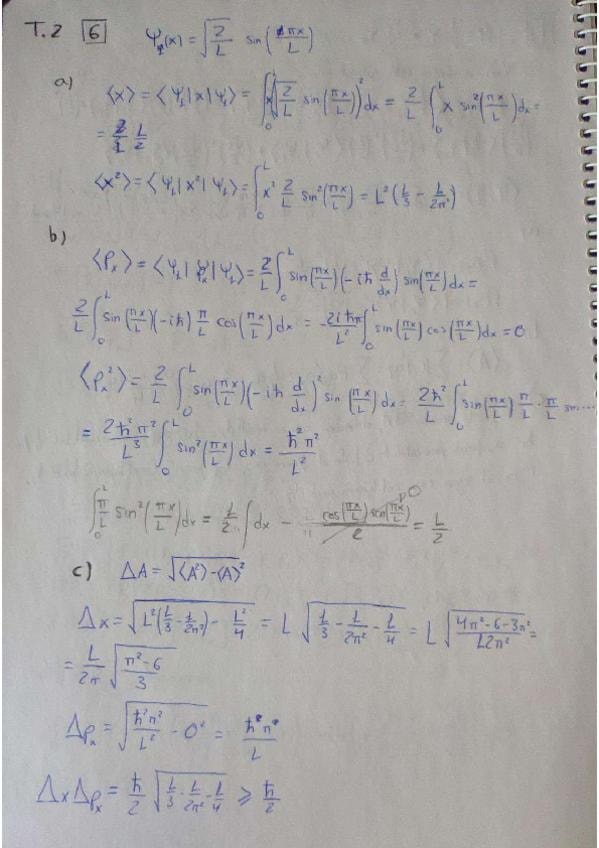 T.2 6 Ψ₁(x) = √(2/L) sin(πx/L)
a) ⟨x⟩ = ⟨Ψ₁|x|Ψ₁⟩ = ∫₀ᴸ x(√(2/L) sin(πx/L))² dx = 2/L ∫₀ᴸ x sin²(πx/L) dx =
= L/2
⟨x²⟩ = ⟨Ψ₁|x²|Ψ₁⟩ = ∫₀ᴸ x² 2/L sin²(πx/L) = L²(1/3 - 1/2π²)
b)
⟨pₓ⟩ = ⟨Ψ₁|pₓ|Ψ₁⟩ = 2/L ∫₀ᴸ sin(πx/L)(-iħ d/dx) sin(πx/L) dx =
2/L ∫₀ᴸ sin(πx/L)(-iħ) π/L cos(πx/L) dx = -2iħπ/L² ∫₀ᴸ sin(πx/L) cos(πx/L) dx = 0
⟨pₓ²⟩ = 2/L ∫₀ᴸ sin(πx/L)(-iħ d/dx)² sin(πx/L) dx = 2ħ²/L ∫₀ᴸ sin(πx/L) π/L · π/L sin...
= 2ħ²π²/L³ ∫₀ᴸ sin²(πx/L) dx = ħ²π²/L²
∫₀ᴸ π/L sin²(πx/L) dx = 1/2 ∫ dx - cos(πx/L) sin(πx/L)/2 0 = L/2
c) ΔA = √(⟨A²⟩-⟨A⟩²)
Δx = √(L²(1/3 - 1/2π²) - L²/4) = L √(1/3 - 1/2π² - 1/4) = L √((4π²-6-3π²)/12π²) =
= L/2π √((π²-6)/3)
Δpₓ = √(ħ²π²/L² - 0²) = ħπ/L
ΔxΔpₓ = ħ/2 √(1/3 - 1/2π² - 1/4) ⩾ ħ/2